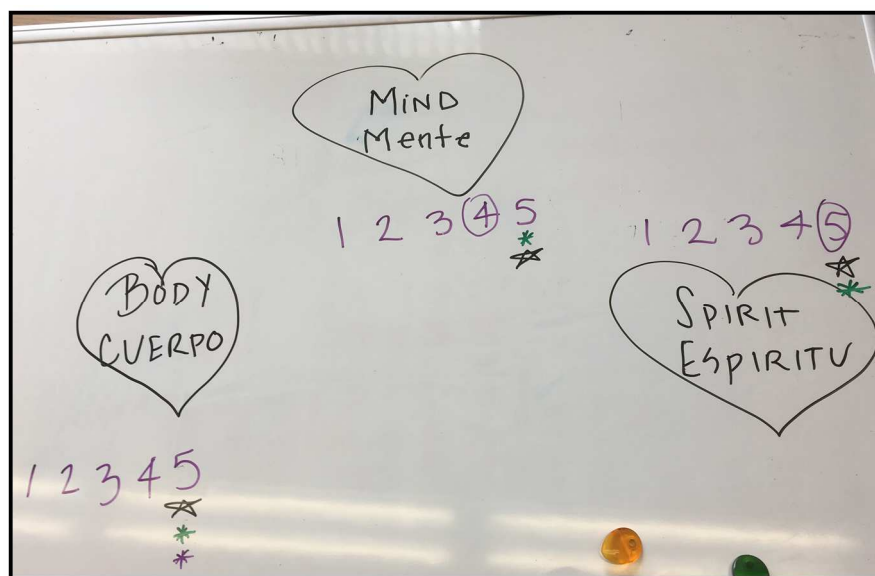 MiND
Mente
1 2 3 4 5
1 2 3 4 5
BODY
CUERPO
SPIRIT
ESPIRITU
1 2 3 4 5